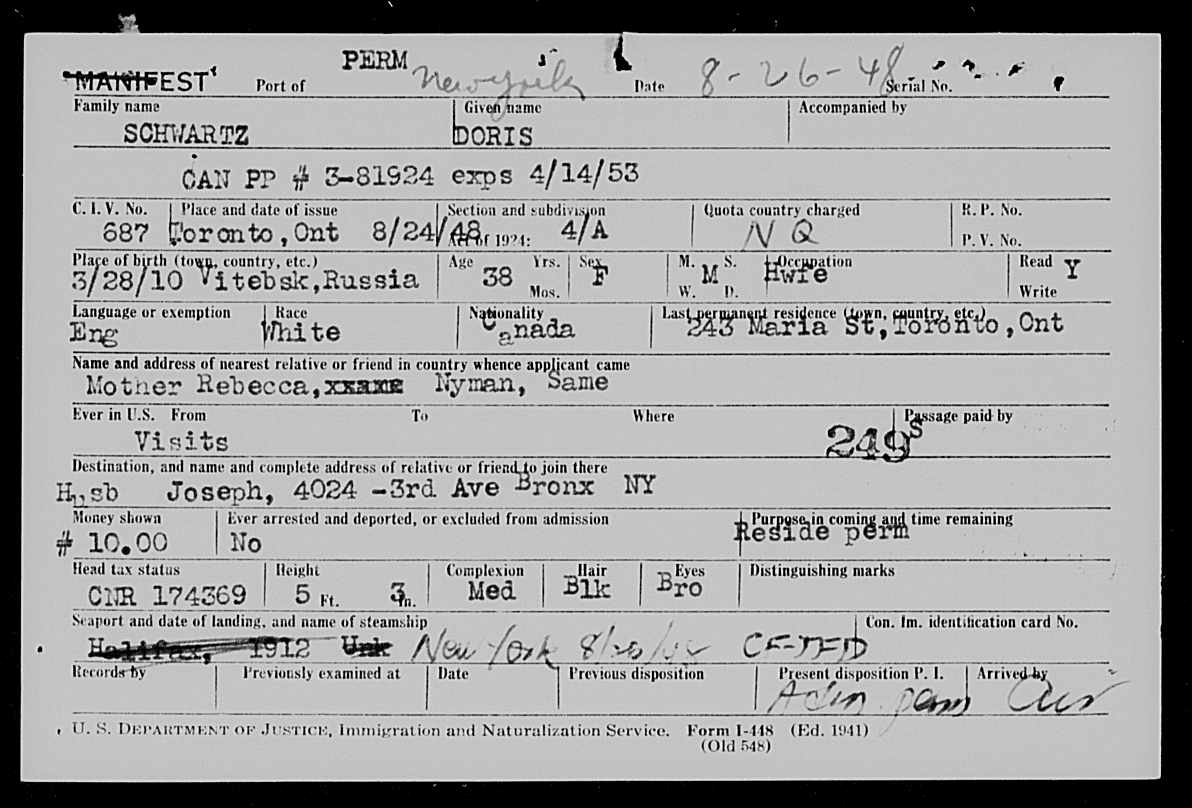 PERM
MANIFEST Port of New York Date 8-26-48 Serial No.
Family name Given name Accompanied by
SCHWARTZ DORIS
CAN PP # 3-81924 exps 4/14/53
C. I. V. No. Place and date of issue Section and subdivision Quota country charged R. P. No.
687 Toronto,Ont 8/24/48 Act of 1924: 4/A N Q P. V. No.
Place of birth (town, country, etc.) Age Yrs. Sex M. S. Occupation Read
3/28/10 Vitebsk,Russia 38 F M Hwfe Y
Mos. W. D. Write
Language or exemption Race Nationality Last permanent residence (town, country, etc.)
Eng White Canada 243 Maria St,Toronto,Ont
Name and address of nearest relative or friend in country whence applicant came
Mother Rebecca, Nyman, Same
Ever in U.S. From To Where Passage paid by
Visits 249 S
Destination, and name and complete address of relative or friend to join there
Husb Joseph, 4024 -3rd Ave Bronx NY
Money shown Ever arrested and deported, or excluded from admission Purpose in coming and time remaining
# 10.00 No Reside perm
Head tax status Height Complexion Hair Eyes Distinguishing marks
CNR 174369 5 Ft. 3 In. Med Blk Bro
Seaport and date of landing, and name of steamship Con. Im. identification card No.
Halifax, 1912 Unk New York CF-TFD
Records by Previously examined at Date Previous disposition Present disposition P. I. Arrived by
Adm perm Air
U. S. DEPARTMENT OF JUSTICE, Immigration and Naturalization Service. Form I-448 (Ed. 1941)
(Old 548)